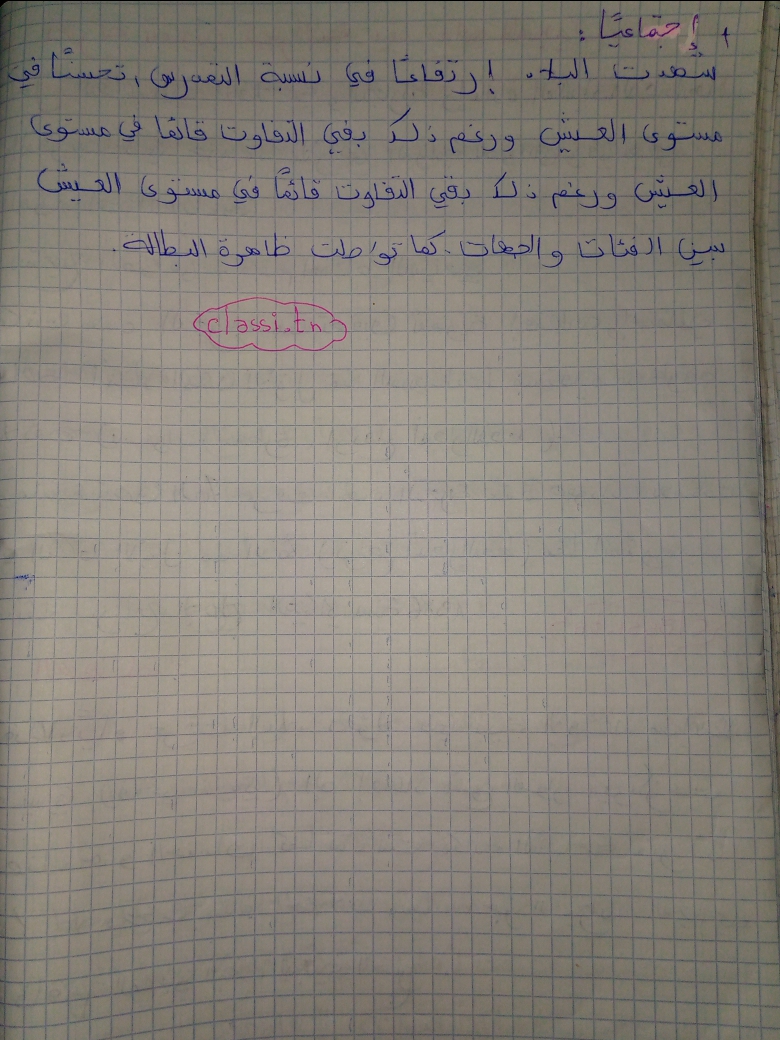 + إجتماعيًا :
شهدت البلاد إرتفاعًا في نسبة التمدرس، تحسنًا في
مستوى العيش ورغم ذلك بقي التفاوت قائما في مستوى
العيش ورغم ذلك بقي التفاوت قائمًا في مستوى العيش
بين الفئات والجهات. كما تواصلت ظاهرة البطالة.
classi.tn